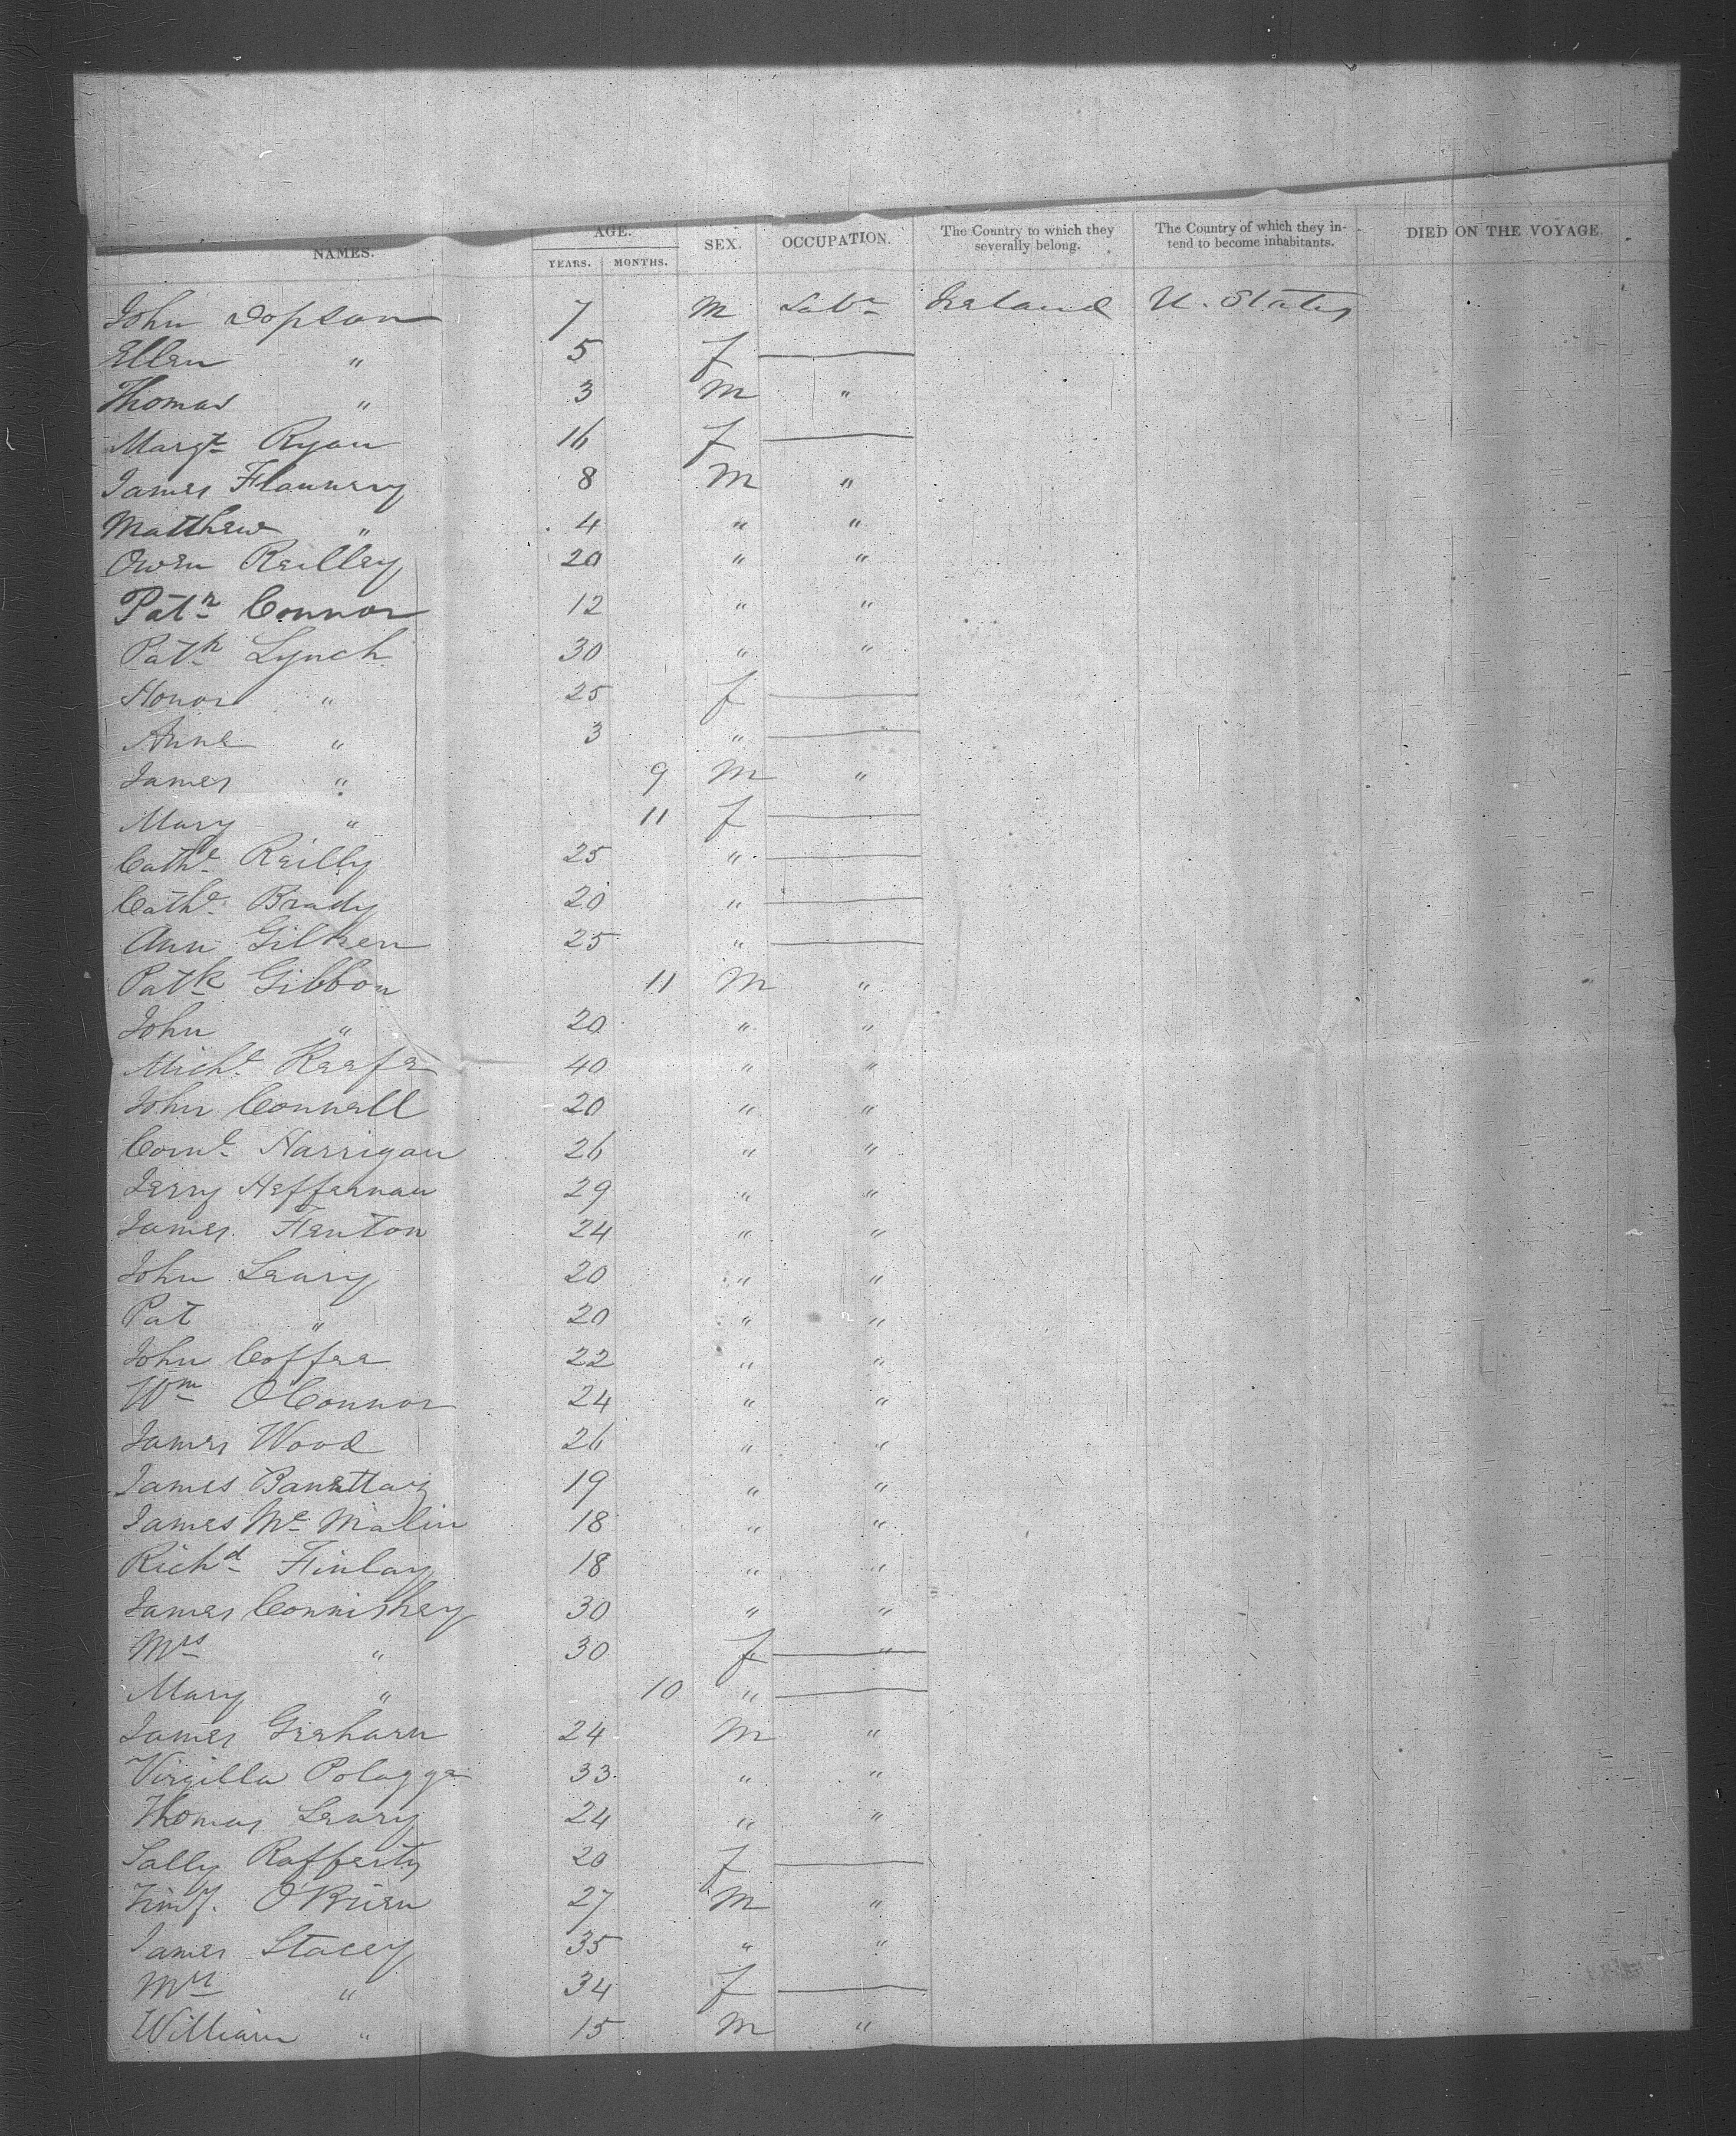 NAMES. AGE. YEARS. MONTHS. SEX. OCCUPATION. The Country to which they severally belong. The Country of which they intend to become inhabitants. DIED ON THE VOYAGE.
John Dopson 7 M Labr Ireland U. States
Ellen " 5 f
Thomas " 3 M "
Margt Ryan 16 f
James Flannery 8 M "
Matthew " 4 " "
Owen Reilley 20 " "
Patk Connor 12 " "
Patk Lynch 30 " "
Honor " 25 f
Anne " 3 "
James " 9 M "
Mary " 11 f
Cathe Reilly 25 "
Cathe Brady 20 "
Ann Gilken 25 "
Patk Gibbon 11 M "
John " 20 " "
Michl Keefe 40 " "
John Connell 20 " "
Cornl Harrigan 26 " "
Jerry Heffernan 29 " "
James Fenton 24 " "
John Leary 20 " "
Pat " 20 " "
John Coffee 22 " "
Wm OConnor 24 " "
James Wood 26 " "
James 19 " "
James Mc Malin 18 " "
Richd Finlay 18 " "
James Conniskey 30 " "
Mrs " 30 f "
Mary " 10 "
James Graham 24 M "
Virgilla Polagge 33 " "
Thomas Leary 24 " "
Sally Rafferty 20 f
Timy. O'Brien 27 M "
James Stacey 35 " "
Mrs " 34 f
William " 15 M "